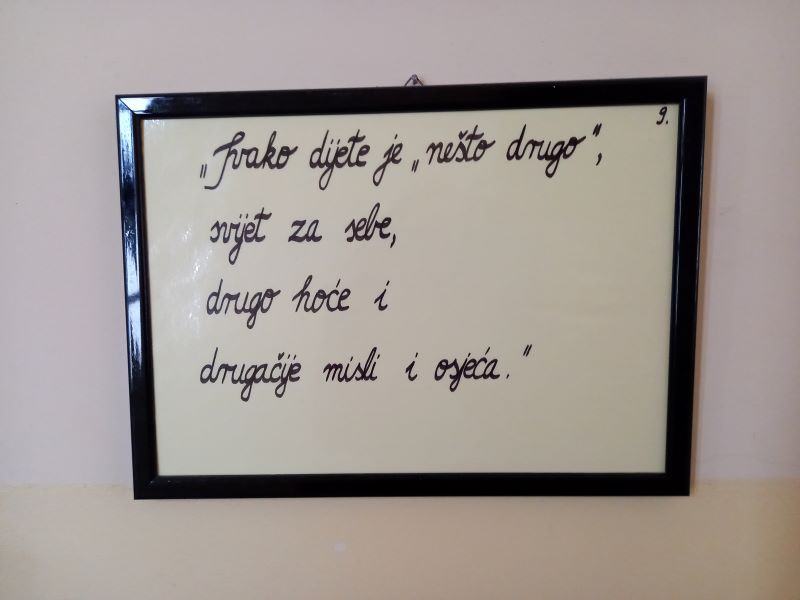 9.
„Svako dijete je „nešto drugo“,
svijet za sebe,
drugo hoće i
drugačije misli i osjeća.“